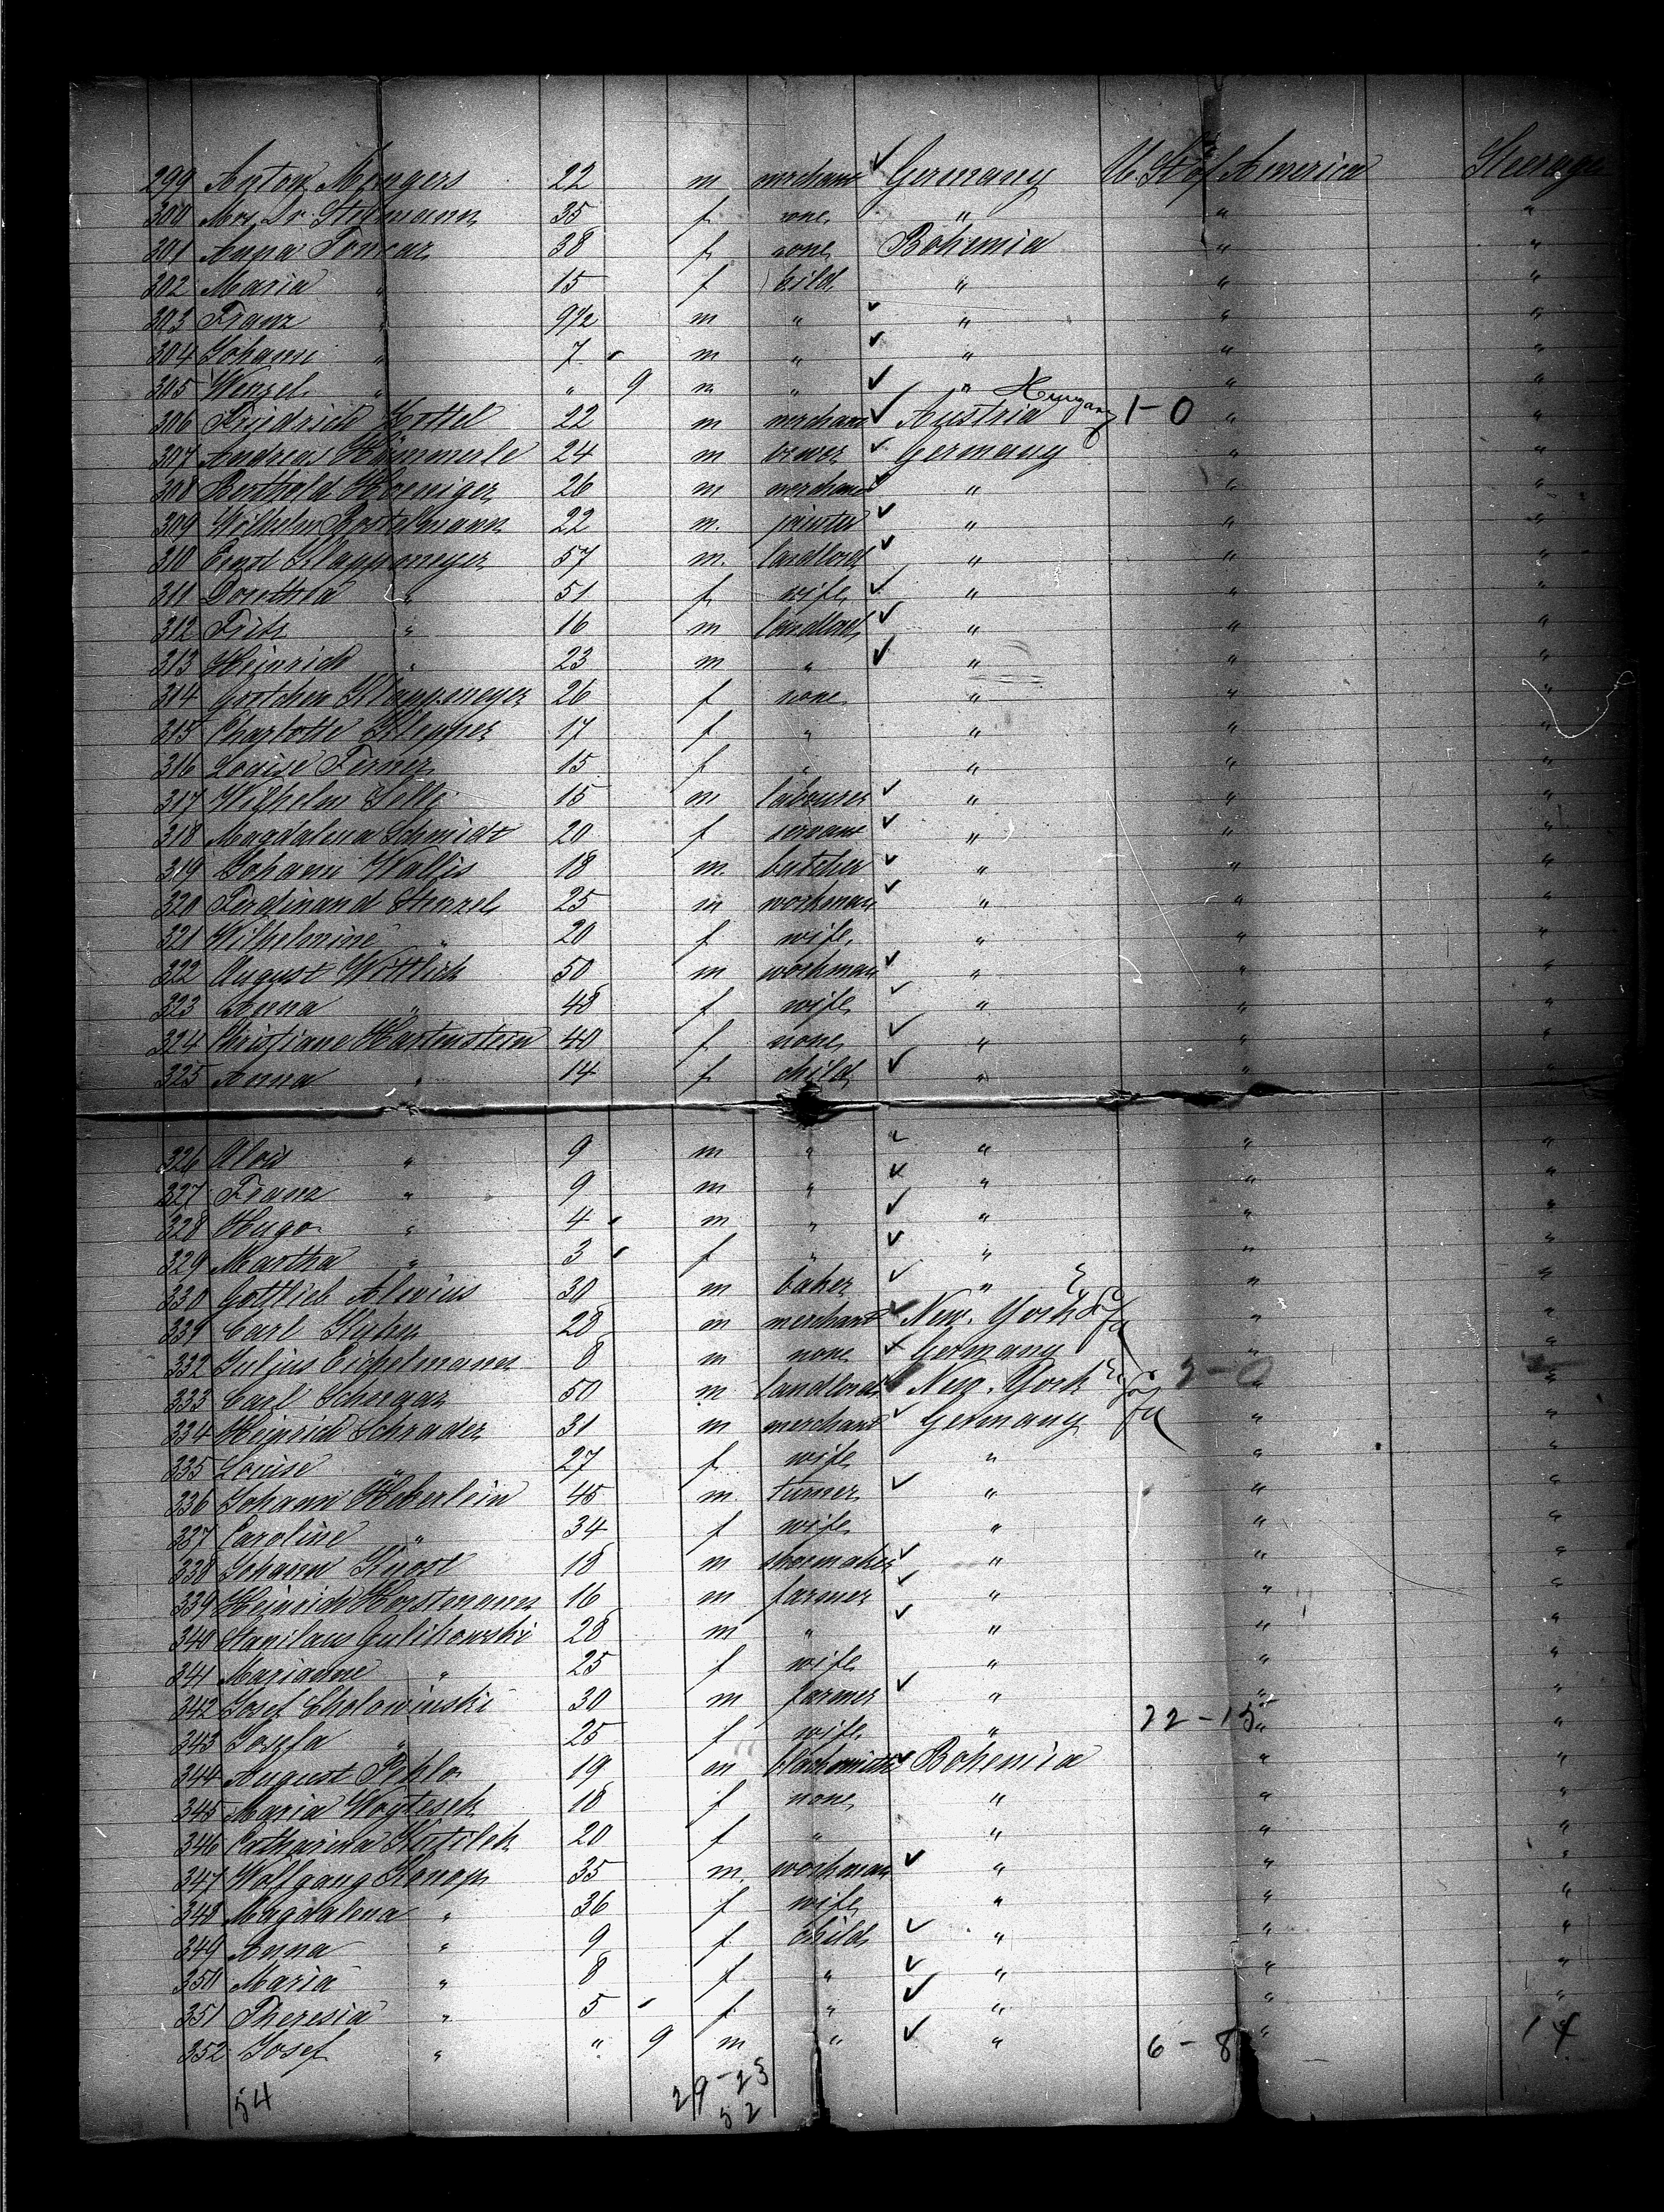 299 Anton Mengers 22 m merchant ✓ Germany U. St. of America Steerage
300 Mrs. Dr. Stegmann 35 f none " " "
301 Anna Toncar 38 f none Bohemia " "
302 Maria " 15 f child " " "
303 Franz " 9½ m " ✓ " " "
304 Johann " 7 m " ✓ " " "
305 Wenzel " " 9 m " ✓ " " "
306 Friedrich Kottel 22 m merchant ✓ Austria Hungary 1-0 " "
307 Andreas Hämmerle 24 m brewer ✓ Germany " "
308 Berthold Hoeniger 26 m merchant ✓ " " "
309 Wilhelm Bostelmann 22 m. painter ✓ " " "
310 Ernst Klappmeyer 57 m. landlord ✓ " " "
311 Dorothea " 51 f wife ✓ " " "
312 Fritz " 16 m landlord ✓ " " "
313 Heinrich " 23 m " ✓ " " "
314 Gretchen Klappmeyer 26 f none " " "
315 Charlotte Klepper 17 f " " " "
316 Louise Ferner 15 f " " " "
317 Wilhelm Selle 15 m labourer ✓ " " "
318 Magdalena Schmidt 20 f servant ✓ " " "
319 Johann Wallis 18 m. butcher ✓ " " "
320 Ferdinand Stenzel 25 m workman ✓ " " "
321 Wilhelmine " 20 f wife " " "
322 August Wittlich 50 m workman ✓ " " "
323 Anna " 48 f wife ✓ " " "
324 Christiane Hartenstein 40 f none ✓ " " "
325 Anna " 14 f child ✓ " " "
326 Alois " 9 m " ✓ " " "
327 Franz " 9 m " ✓ " " "
328 Hugo " 4 m " ✓ " " "
329 Martha " 3 f " ✓ " " "
330 Gottlieb Alevius 30 m baker ✓ " " "
331 Carl Kuhn 28 m merchant ✓ New. York " "
332 Julius Eichelmann 8 m none ✓ Germany " "
333 Carl Schwegar 50 m landlord New. York 2-0 " "
334 Heinrich Schrader 31 m merchant ✓ Germany " "
335 Louise " 27 f wife " " "
336 Johann Heberlein 45 m. turner ✓ " " "
337 Caroline " 34 f wife " " "
338 Johann Knost 18 m shoemaker ✓ " " "
339 Heinrich Horstmann 16 m farmer ✓ " " "
340 Stanilaus Gulikowski 28 m " ✓ " " "
341 Marianne " 25 f wife " " "
342 Josef Cholowinski 30 m farmer ✓ " " "
343 Josefa " 25 f wife " 22-15 " "
344 August Pehlo 19 m blacksmith ✓ Bohemia " "
345 Maria Wogtesek 18 f none " " "
346 Catharina 20 f " " " "
347 Wolfgang Konop 35 m. workman ✓ " " "
348 Magdalena " 36 f wife " " "
349 Anna " 9 f child ✓ " " "
350 Maria " 8 f " ✓ " " "
351 Theresia " 5 f " ✓ " " "
352 Josef " " 9 m " ✓ " 6-8 " 14
54 29-23
52